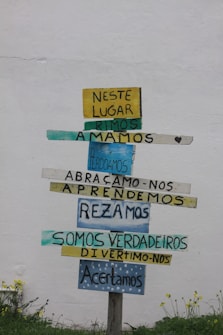 NESTE
LUGAR
RIMOS
AMAMOS
ABRAÇAMO-NOS
APRENDEMOS
REZAMOS
SOMOS VERDADEIROS
DIVERTIMO-NOS
Acertamos